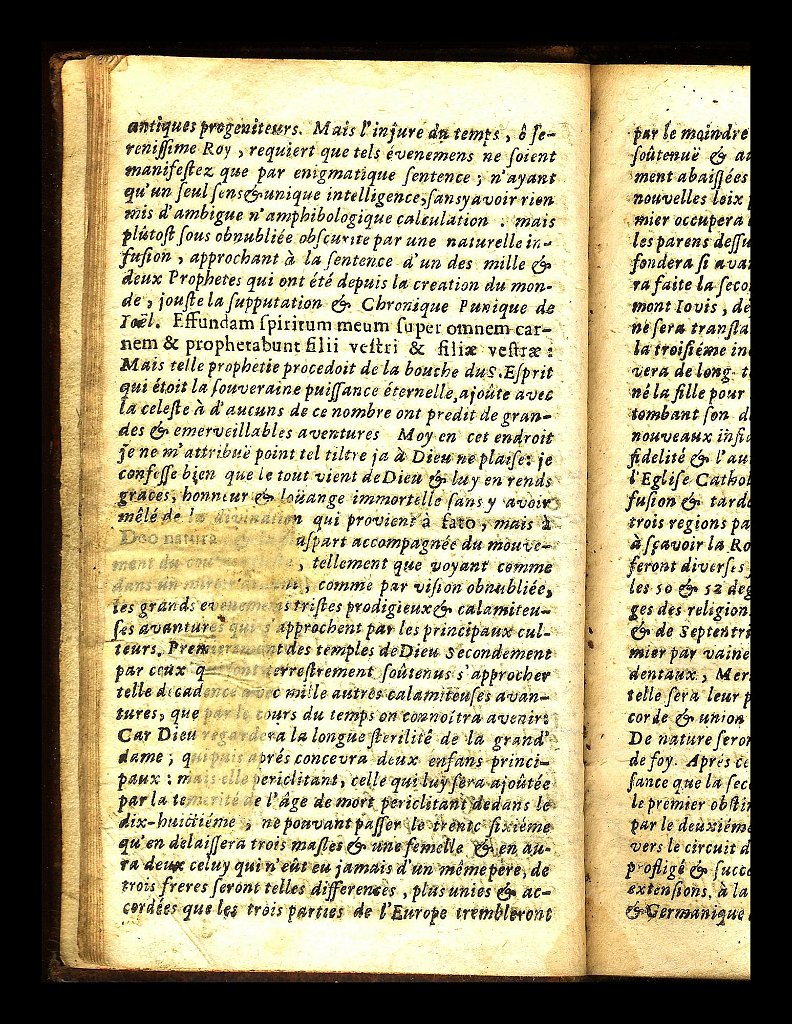 antiques progeniteurs. Mais l'injure du temps, ô ſe-
reniſſime Roy, requiert que tels évenemens ne ſoient
manifeſtez que par enigmatique ſentence; n'ayant
qu'un ſeul ſens & unique intelligence, ſans y avoir rien
mis d'ambigue n'amphibologique calculation : mais
plûtoſt ſous obnubliée obſcurité par une naturelle in-
fuſion, approchant à la ſentence d'un des mille &
deux Prophetes qui ont été depuis la creation du mon-
de, jouſte la ſupputation & Chronique Punique de
Ioël. Effundam ſpiritum meum ſuper omnem car-
nem & prophetabunt filii veſtri & filiæ veſtræ :
Mais telle prophetie procedoit de la bouche du S. Eſprit
qui étoit la ſouveraine puiſſance éternelle, ajoûte avec
la celeſte à d'aucuns de ce nombre ont predit de gran-
des & emerveillables aventures Moy en cet endroit
je ne m'attribuë point tel tiltre ja à Dieu ne plaiſe: je
confeſſe bien que le tout vient de Dieu & luy en rends
graces, honneur & loüange immortelle ſans y avoir
mêlé de la divination qui provient à fato, mais à
Deo natura aſpart accompagnée du mouve-
ment du , tellement que voyant comme
dans un , comme par viſion obnubliée,
les grands evenemens triſtes prodigieux & calamiteu-
ſes avantures qui s'approchent par les principaux cul-
teurs. Premierement des temples de Dieu Secondement
par ceux qui ſont terreſtrement ſoûtenus s'approcher
telle decadence avec mille autres calamiteuſes avan-
tures, que par le cours du temps on connoîtra avenir:
Car Dieu regardera la longue ſterilité de la grand'
dame ; qui pais aprés concevra deux enfans princi-
paux : mais elle periclitant, celle qui luy ſera ajoûtée
par la temerité de l'âge de mort periclitant dedans le
dix-huictiéme, ne pouvant paſſer le trente ſixiéme
qu'en délaiſſera trois maſles & une femelle & en au-
ra deux celuy qui n'eût eu jamais d'un même pere, de
trois freres ſeront telles differences, plus unies & ac-
cordées que les trois parties de l'Europe trembleront
par le moindre
ſoûtenuë & au
ment abaiſſées
nouvelles loix
mier occupera
les parens deſſu
fondera ſi avan
ra faite la ſeco
mont Iovis, de
ne ſera tranſla
la troiſiéme in
vera de long t
né la fille pour
tombant ſon d
nouveaux inſi
fidelité & l'au
l'Egliſe Cathol
fuſion & tarde
trois regions pa
à ſçavoir la Ro
feront diverſes
les 50 & 52 deg
ges des religion
& de Septentri
mier par vaine
dentaux, Mer
telle ſera leur p
corde & union
De nature ſeron
de foy. Aprés ce
ſance que la ſec
le premier obſtin
par le deuxiéme
vers le circuit d
profligé & ſucce
extenſions, à la
& Germanique